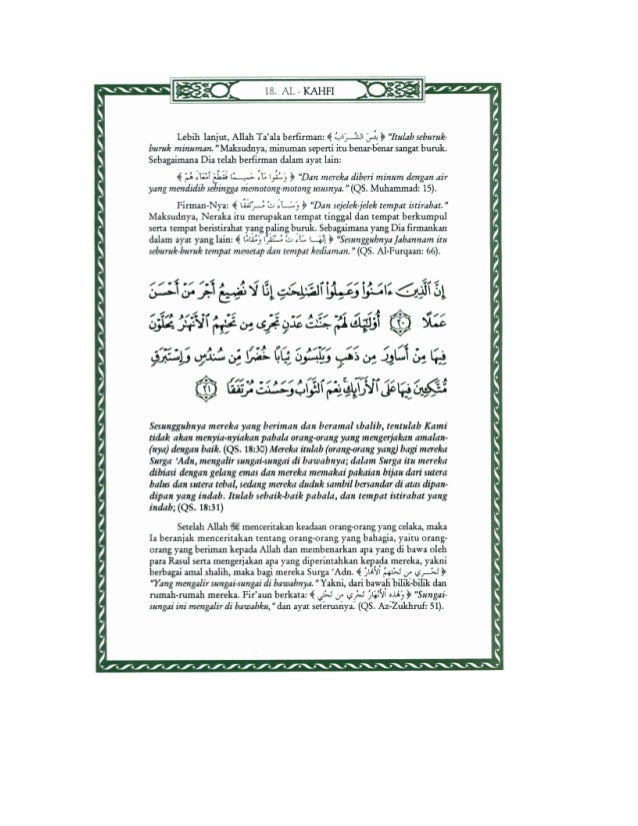 18. AL - KAHFI
Lebih lanjut, Allah Ta'ala berfirman: ﴾ بِئْسَ الشَّرَابُ ﴿ "Itulah seburuk-
buruk minuman." Maksudnya, minuman seperti itu benar-benar sangat buruk.
Sebagaimana Dia telah berfirman dalam ayat lain:
﴾ وَسُقُوا مَاءً حَمِيمًا فَقَطَّعَ أَمْعَاءَهُمْ ﴿ "Dan mereka diberi minum dengan air
yang mendidih sehingga memotong-motong ususnya." (QS. Muhammad: 15).
Firman-Nya: ﴾ وَسَاءَتْ مُرْتَفَقًا ﴿ "Dan sejelek-jelek tempat istirahat."
Maksudnya, Neraka itu merupakan tempat tinggal dan tempat berkumpul
serta tempat beristirahat yang paling buruk. Sebagaimana yang Dia firmankan
dalam ayat yang lain: ﴾ إِنَّهَا سَاءَتْ مُسْتَقَرًّا وَمُقَامًا ﴿ "Sesungguhnya Jahannam itu
seburuk-buruk tempat menetap dan tempat kediaman." (QS. Al-Furqaan: 66).
إِنَّ الَّذِينَ ءَامَنُوا وَعَمِلُوا الصَّٰلِحَٰتِ إِنَّا لَا نُضِيعُ أَجْرَ مَنْ أَحْسَنَ
عَمَلًا ﴿٣٠﴾ أُولَٰئِكَ لَهُمْ جَنَّٰتُ عَدْنٍ تَجْرِى مِن تَحْتِهِمُ الْأَنْهَٰرُ يُحَلَّوْنَ
فِيهَا مِنْ أَسَاوِرَ مِن ذَهَبٍ وَيَلْبَسُونَ ثِيَابًا خُضْرًا مِّن سُندُسٍ وَإِسْتَبْرَقٍ
مُّتَّكِئِينَ فِيهَا عَلَى الْأَرَائِكِ نِعْمَ الثَّوَابُ وَحَسُنَتْ مُرْتَفَقًا ﴿٣١﴾
Sesungguhnya mereka yang beriman dan beramal shalih, tentulah Kami
tidak akan menyia-nyiakan pahala orang-orang yang mengerjakan amalan-
(nya) dengan baik. (QS. 18:30) Mereka itulah (orang-orang yang) bagi mereka
Surga 'Adn, mengalir sungai-sungai di bawahnya; dalam Surga itu mereka
dihiasi dengan gelang emas dan mereka memakai pakaian hijau dari sutera
halus dan sutera tebal, sedang mereka duduk sambil bersandar di atas dipan-
dipan yang indah. Itulah sebaik-baik pahala, dan tempat istirahat yang
indah; (QS. 18:31)
Setelah Allah ﷻ menceritakan keadaan orang-orang yang celaka, maka
Ia beranjak menceritakan tentang orang-orang yang bahagia, yaitu orang-
orang yang beriman kepada Allah dan membenarkan apa yang di bawa oleh
para Rasul serta mengerjakan apa yang diperintahkan kepada mereka, yakni
berbagai amal shalih, maka bagi mereka Surga 'Adn. ﴾ تَجْرِي مِن تَحْتِهِمُ الْأَنْهَارُ ﴿
"Yang mengalir sungai-sungai di bawahnya." Yakni, dari bawah bilik-bilik dan
rumah-rumah mereka. Fir'aun berkata: ﴾ وَهَذِهِ الْأَنْهَارُ تَجْرِي مِن تَحْتِي ﴿ "Sungai-
sungai ini mengalir di bawahku," dan ayat seterusnya. (QS. Az-Zukhruf: 51).